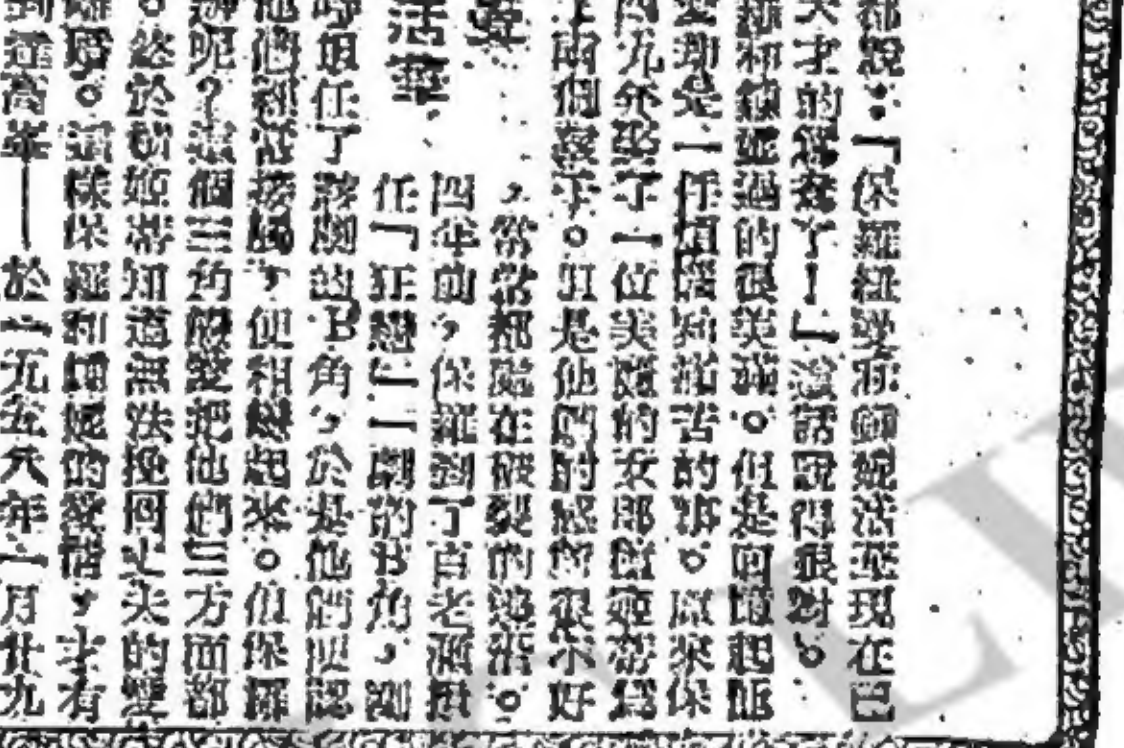 都說：「保羅紐曼有師妮活華現在已
天才的爲妻了！」這話說得很對。
羅和師妮過的很美滿。但是回憶起
愛却是一件煩惱痛苦的事。原來保
四九年娶了一位美麗的女郎 姬蒂爲
了兩個孩子。但是他們的感情很不好
，常常都處在破裂的邊沿。
四年前，保羅到了百老滙
任「狂戀」一劇的B角，
時担任了該劇的B角，於是他們便認
他們都常接觸，便相戀起來。但保羅
辦呢？這個三角的愛把他們三方面都
。終於 姬蒂知道無法挽回丈夫的愛
離婚。這樣保羅和師妮的愛情，才有
到達高峯——於一九五八年一月廿九
活華